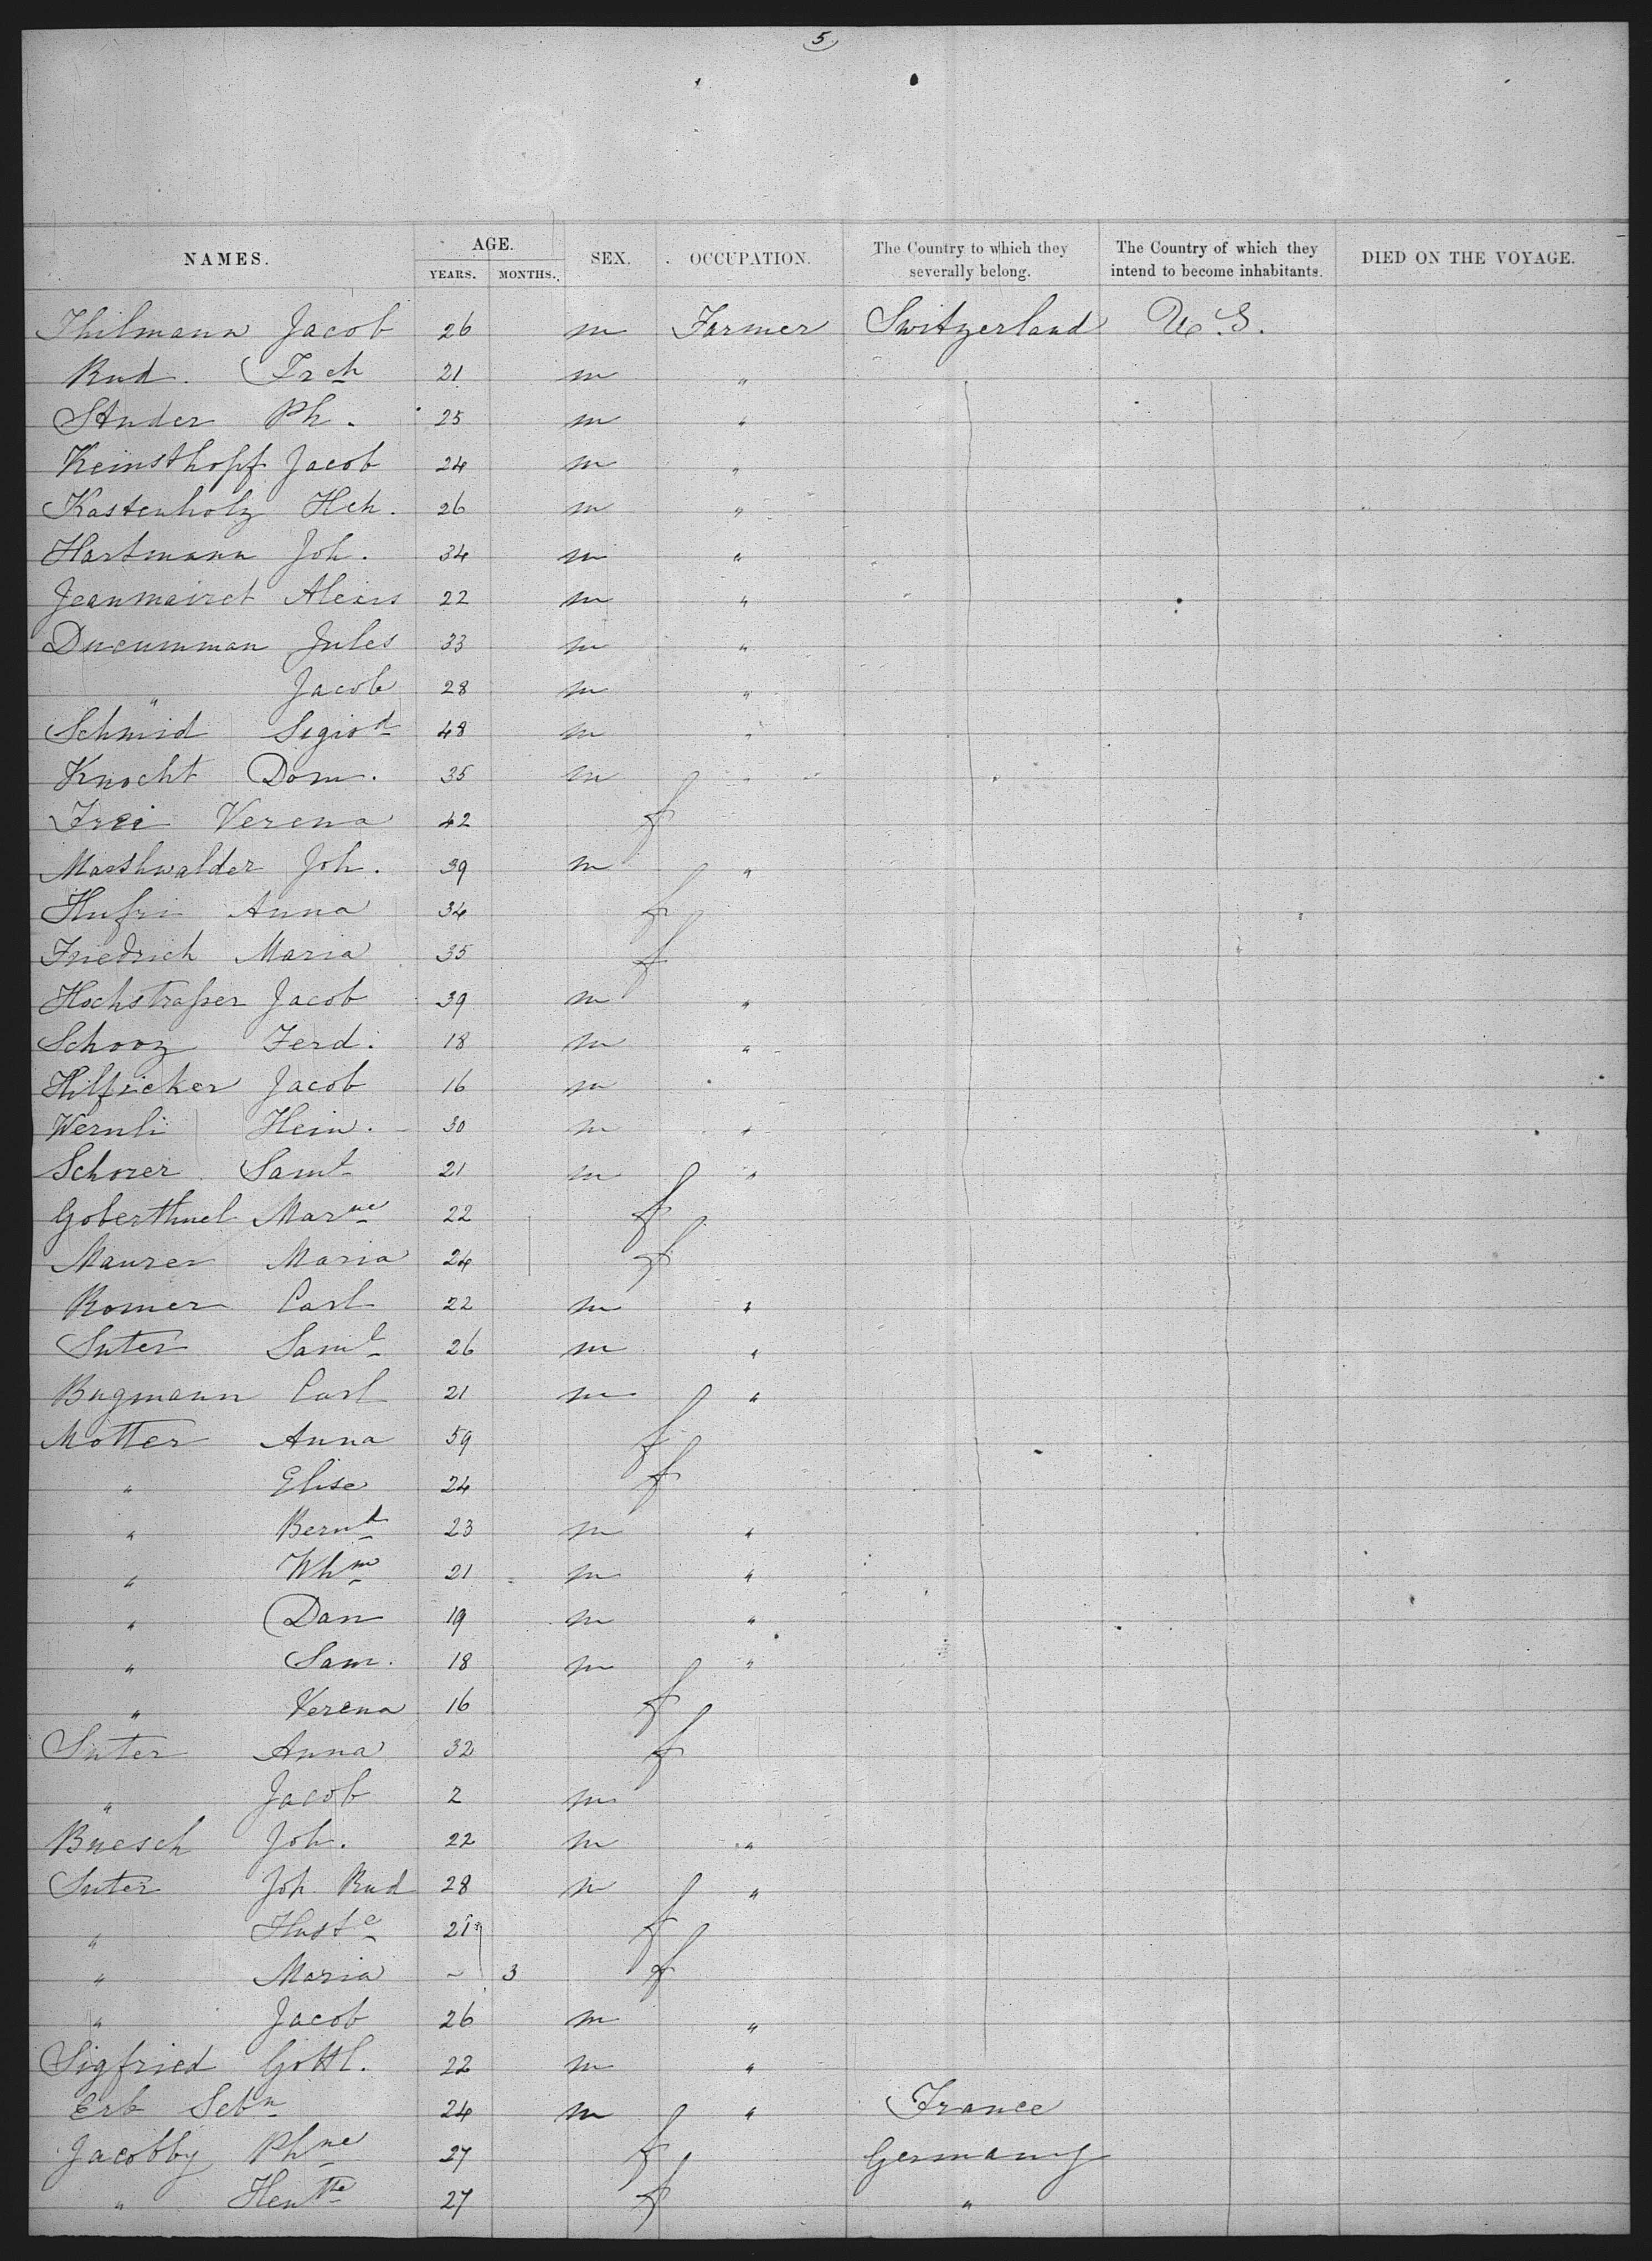 5
NAMES. AGE. YEARS. MONTHS. SEX. OCCUPATION. The Country to which they severally belong. The Country of which they intend to become inhabitants. DIED ON THE VOYAGE.
Thilmann Jacob 26 m Farmer Switzerland U.S.
Rud. Frch 21 m "
Studer Ph. 25 m "
Keinsthopf Jacob 24 m "
Kastenholz Hch. 26 m "
Hartmann Joh. 34 m "
Jeanmairet Alexis 22 m "
Ducumman Jules 33 m "
" Jacob 28 m "
Schmid 48 m "
Knocht Dom. 35 m "
Frei Verena 42 f
Maeshwalder Joh. 39 m "
Hufri Anna 34 f
Friedrich Maria 35 f
Hochstraßer Jacob 39 m "
Schooz Ferd. 18 m "
Hilficker Jacob 16 m
Wernli Hein. 30 m "
Schorer Saml 21 m "
Goberthuel Marne 22 f
Maurer Maria 24 f
Romer Carl 22 m "
Suter Saml 26 m "
Bugmann Carl 21 m "
Motter Anna 59 f
" Elise 24 f
" Bernd 23 m "
" Whm 21 m "
" Dan 19 m "
" Sam. 18 m "
" Verena 16 f
Suter Anna 32 f
" Jacob 2 m
Buesch Joh. 22 m "
Suter Joh. Rud 28 m "
" 21 f
" Maria - 3 f
" Jacob 26 m "
Sigfried Gottl. 22 m "
Erb Sebn 24 m " France
Jacobby Phne 27 f Germany
" Hentte 27 f "